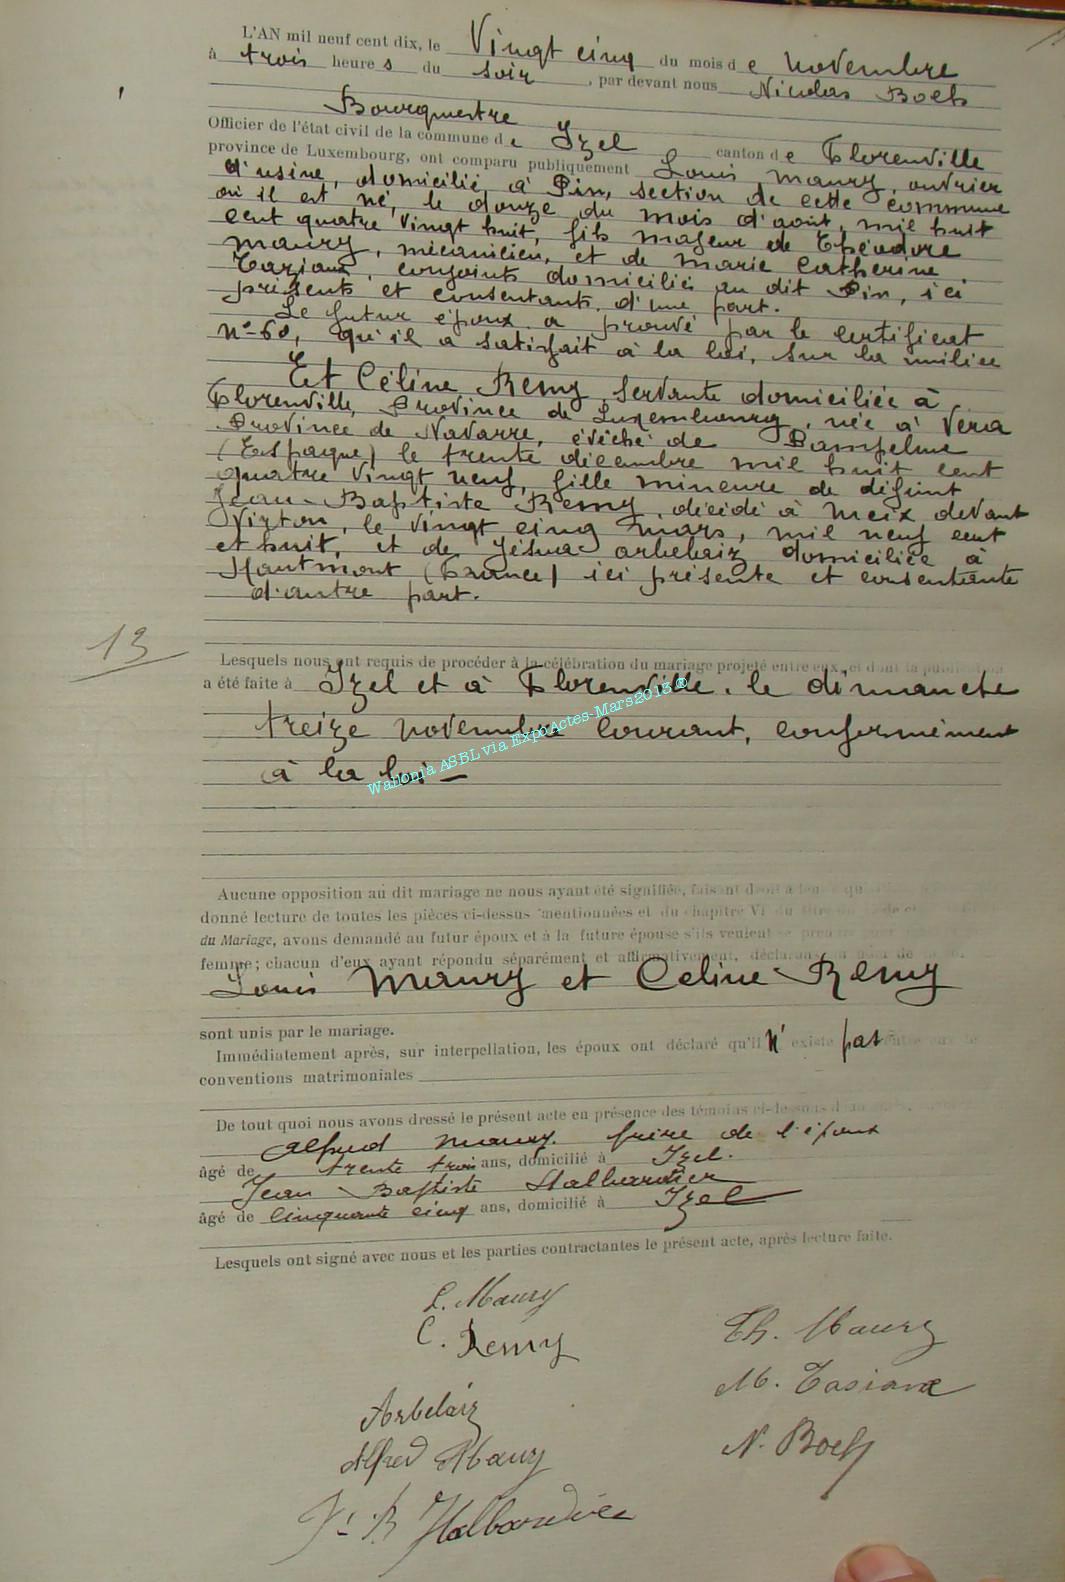 L'AN mil neuf cent dix, le Vingt cinq du mois de novembre
à trois heures du soir, par devant nous Nicolas Boels
Bourgmestre
Officier de l'état civil de la commune de Izel canton de Florenville
province de Luxembourg, ont comparu publiquement Louis Maury, ouvrier
d'usine, domicilié à Pin, section de cette commune
où il est né, le douze du mois d'août, mil huit
cent quatre vingt huit, fils majeur de Théodore
Maury, mécanicien, et de Marie Catherine
Taziaux, conjoints domiciliés au dit Pin, ici
présents et consentants, d'une part.
Le futur époux a prouvé par le certificat
n° 60, qu'il a satisfait à la loi, sur la milice
Et Céline Remy, servante domiciliée à
Florenville, Province de Luxembourg, née à Vera
Province de Navarre, évêché de Pampelune
(Espagne) le trente décembre mil huit cent
quatre vingt neuf, fille mineure de défunt
Jean-Baptiste Remy, décédé à Meix devant
Virton, le vingt cinq mars, mil neuf cent
et huit, et de arbelaiz domiciliée à
Hautmont (France) ici présente et consentante
d'autre part.
13
Lesquels nous ont requis de procéder à la célébration du mariage projeté entre eux, et dont la publication
a été faite à Izel et à Florenville, le dimanche
treize novembre courant, conformément
à la loi —
Wallonia ASBL via ExpoActes-Mars2013 ®
Aucune opposition au dit mariage ne nous ayant été signifiée, faisant droit à leur
donné lecture de toutes les pièces ci-dessus mentionnées et du chapitre VI du titre du
du Mariage, avons demandé au futur époux et à la future épouse s'ils veulent se prendre
femme; chacun d'eux ayant répondu séparément et affirmativement, déclarons au nom de
Louis Maury et Céline Remy
sont unis par le mariage.
Immédiatement après, sur interpellation, les époux ont déclaré qu'il n'existe pas entre eux de
conventions matrimoniales
De tout quoi nous avons dressé le présent acte en présence des témoins ci-dessous
Alfred Maury, frère de l'époux
âgé de trente trois ans, domicilié à Izel.
Jean-Baptiste Halbardier
âgé de cinquante cinq ans, domicilié à Izel
Lesquels ont signé avec nous et les parties contractantes le présent acte, après lecture faite.
L. Maury
C. Remy
Th. Maury
M. Tasiaux
Arbelaiz
Alfred Maury
N. Boels
J. B Halbardier